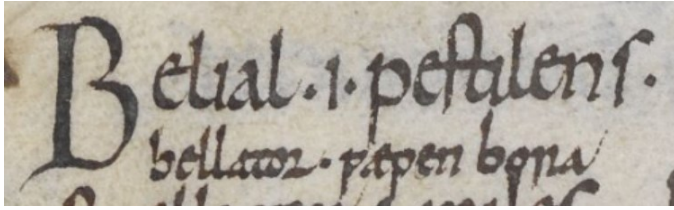 Belial · i · pestilens ·
bellator · pæpen bona